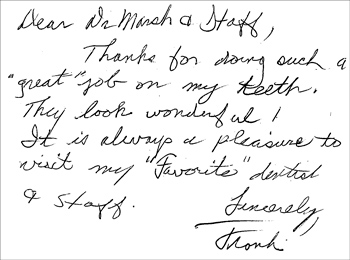 Dear Dr Marsh & Staff,
Thanks for doing such a
"great" job on my teeth.
They look wonderful!
It is always a pleasure to
visit my "Favorite" dentist
& staff.
Sincerely,
Frank